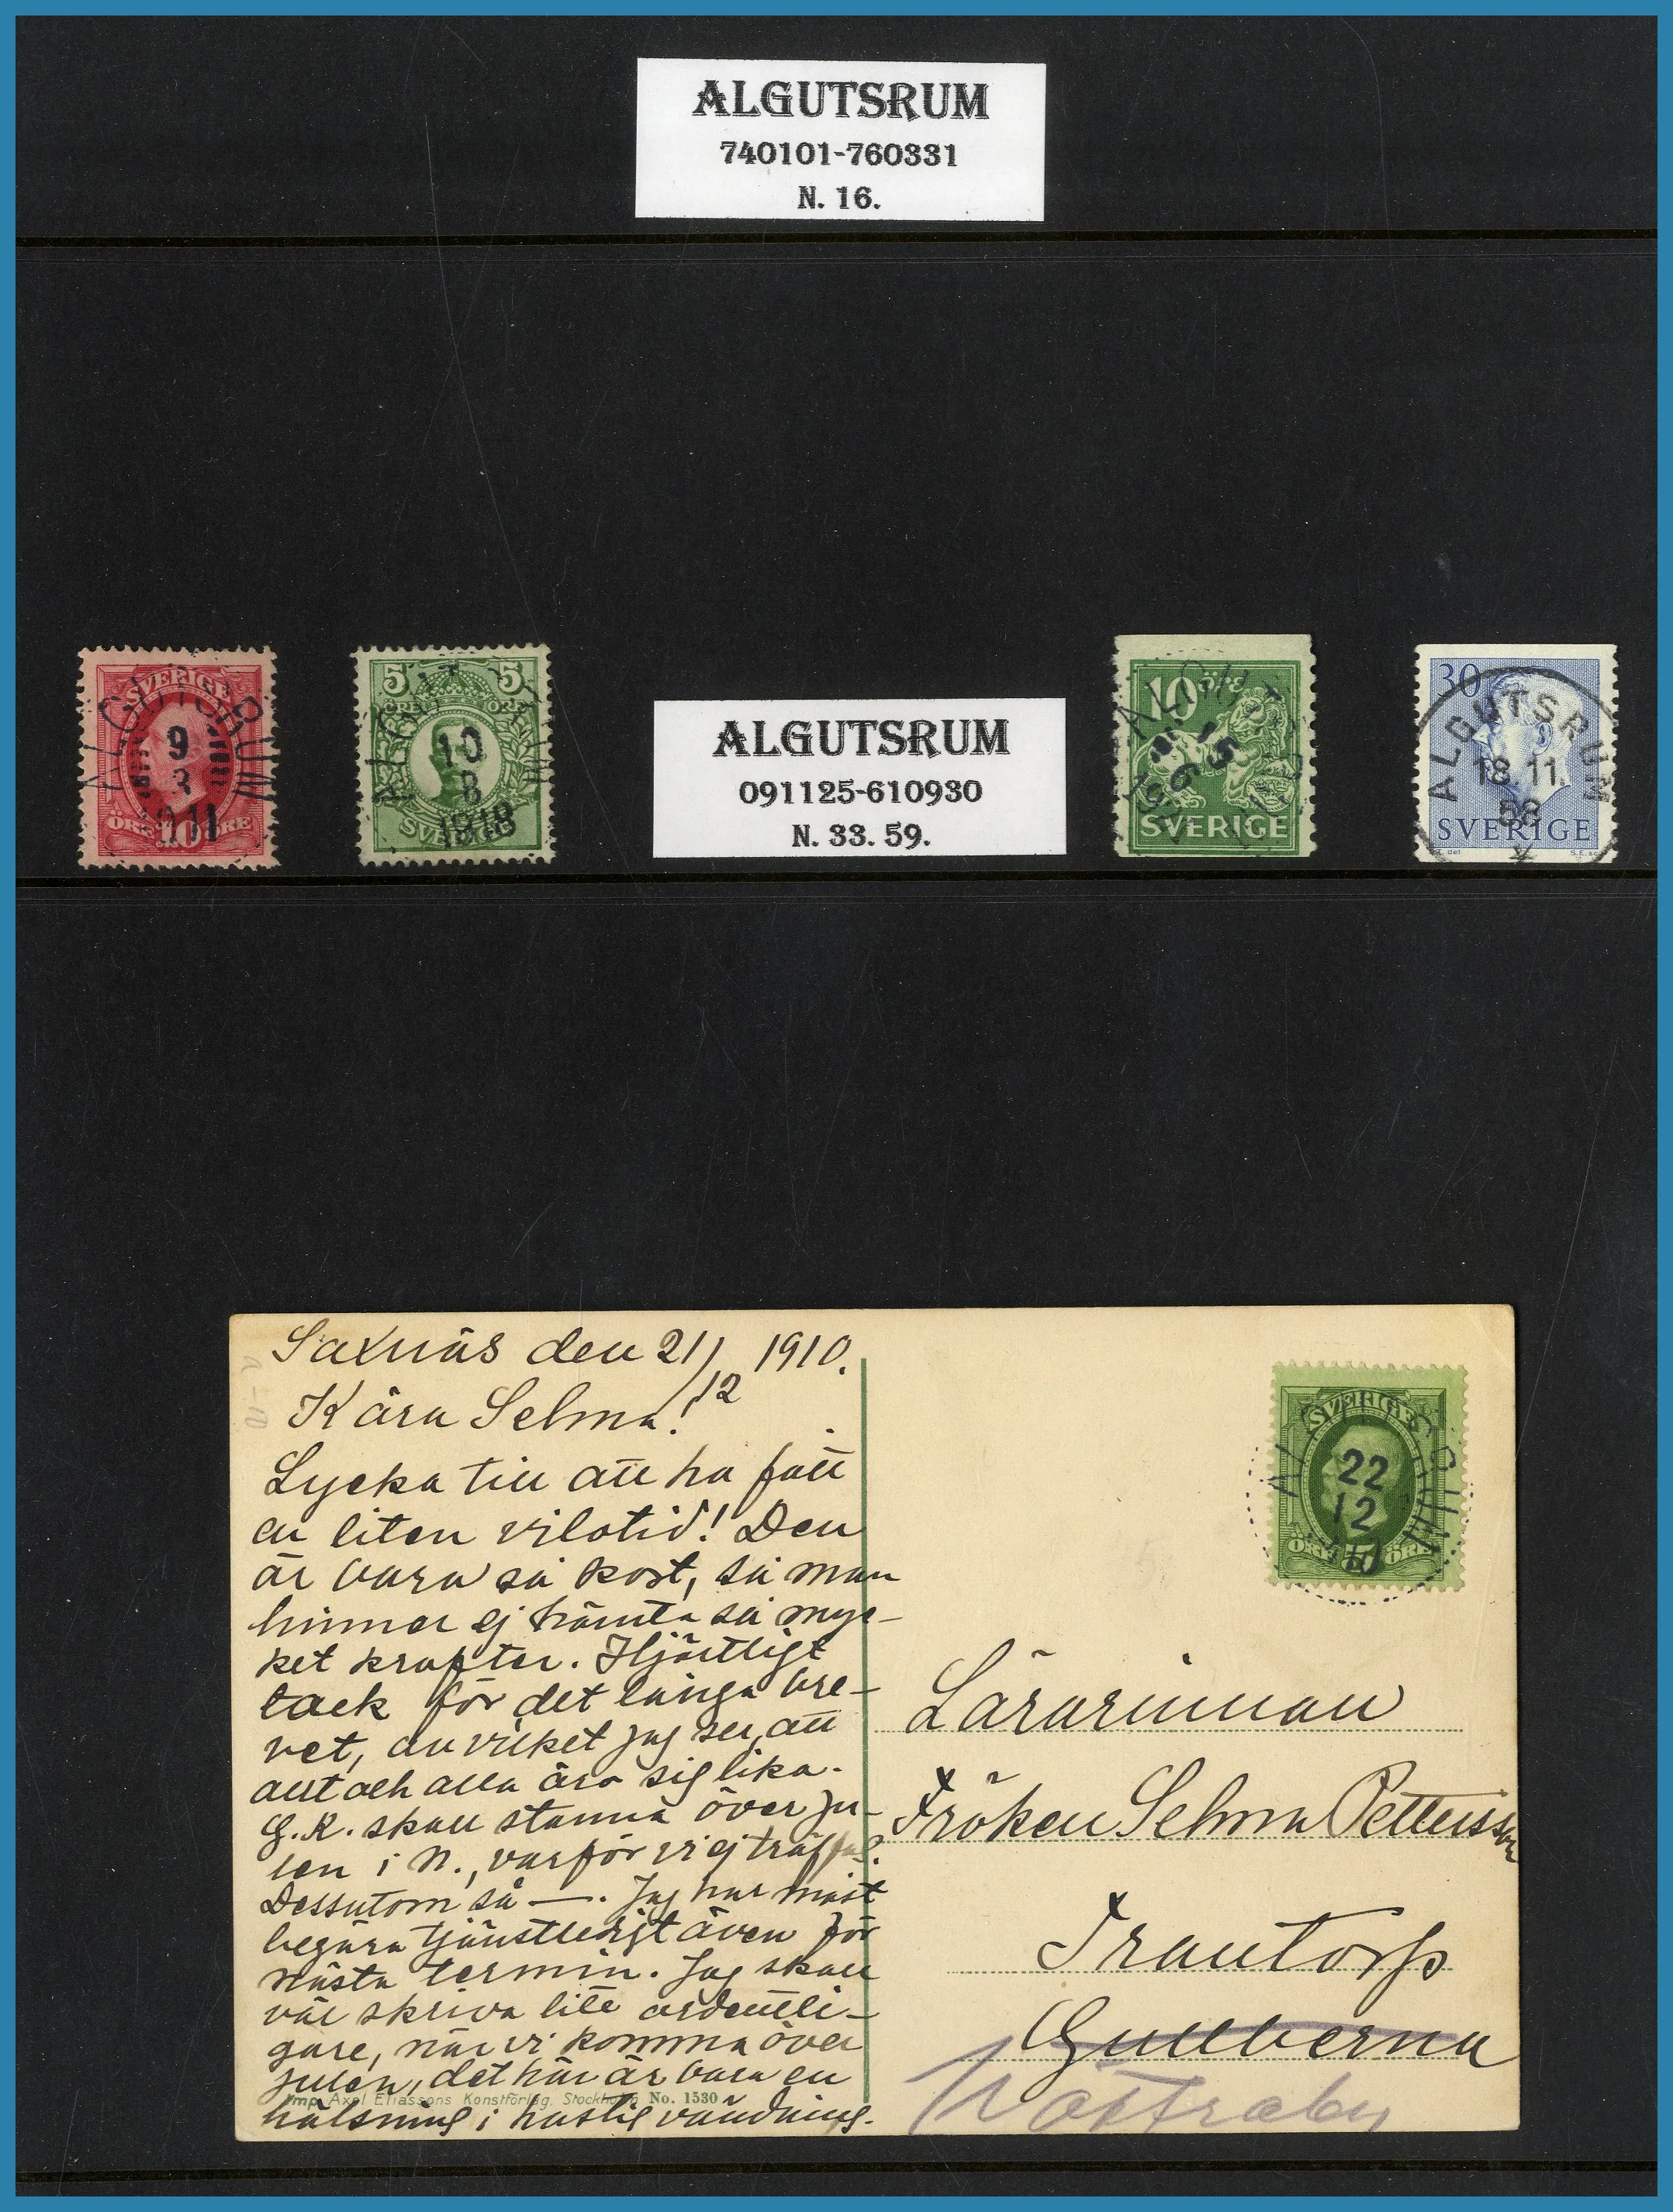 ALGUTSRUM
740101-760331
N. 16.
SVERIGE
ALGUTSRUM
9
3
1911
ÖRE 10 ÖRE
5 5
ÖRE
ALGUTSRUM
10
8
1918
ALGUTSRUM
091125-610930
N. 33. 59.
10 ÖRE
15
6
SVERIGE
30
ALGUTSRUM
18.11.
58
SVERIGE
Saxnäs den 21/12 1910.
Kära Selma!
Lycka till att ha fått
en liten vilotid! Den
är bara så kort, så man
hinner ej hämta så myc-
ket krafter. Hjärtligt
tack för det långa bre-
vet, av vilket jag ser, att
allt och alla äro sig lika.
G. K. skall stanna över ju-
len i N., varför vi ej träffas.
Dessutom så —. Jag har måst
begära tjänstledigt även för
nästa termin. Jag skall
väl skriva lite ordentli-
gare, när vi komma över
julen, det här är bara en
hälsning i hastig vändning.
Imp. Axel Eliassons Konstförlag. Stockholm No. 1530
SVERIGE
ALGUTSRUM
22
12
10
ÖRE 5 ÖRE
Lärarinnan
Fröken Selma Pettersson
Trantorp
Gullberna
Nättraby